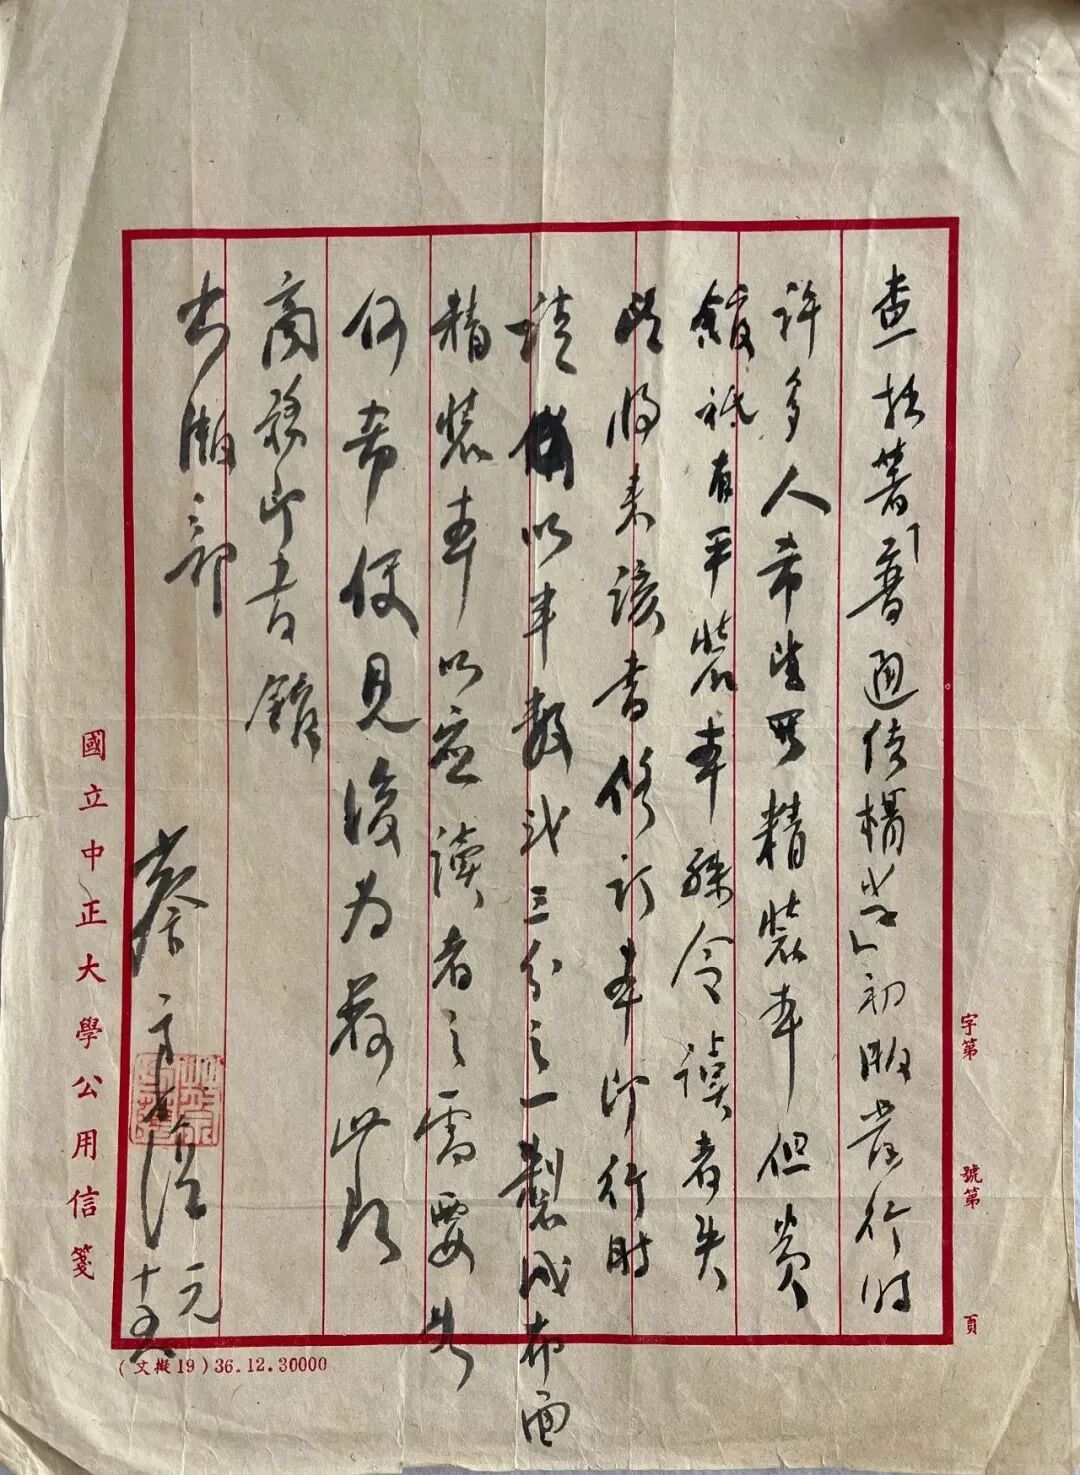 查拙著「普通依棉学」初版发行時
許多人希望習精裝本但貴
館祇有平装本殊令讀者失
望將来該書修訂本印行時
請 以半數或三分之一製成布面
精裝本以应读者之需要如
何希便見復為荷此致
商務印書館
出版部
蔡 元
十六
國立中正大學公用信箋
字第 號第 頁
(文擬19)36.12.30000